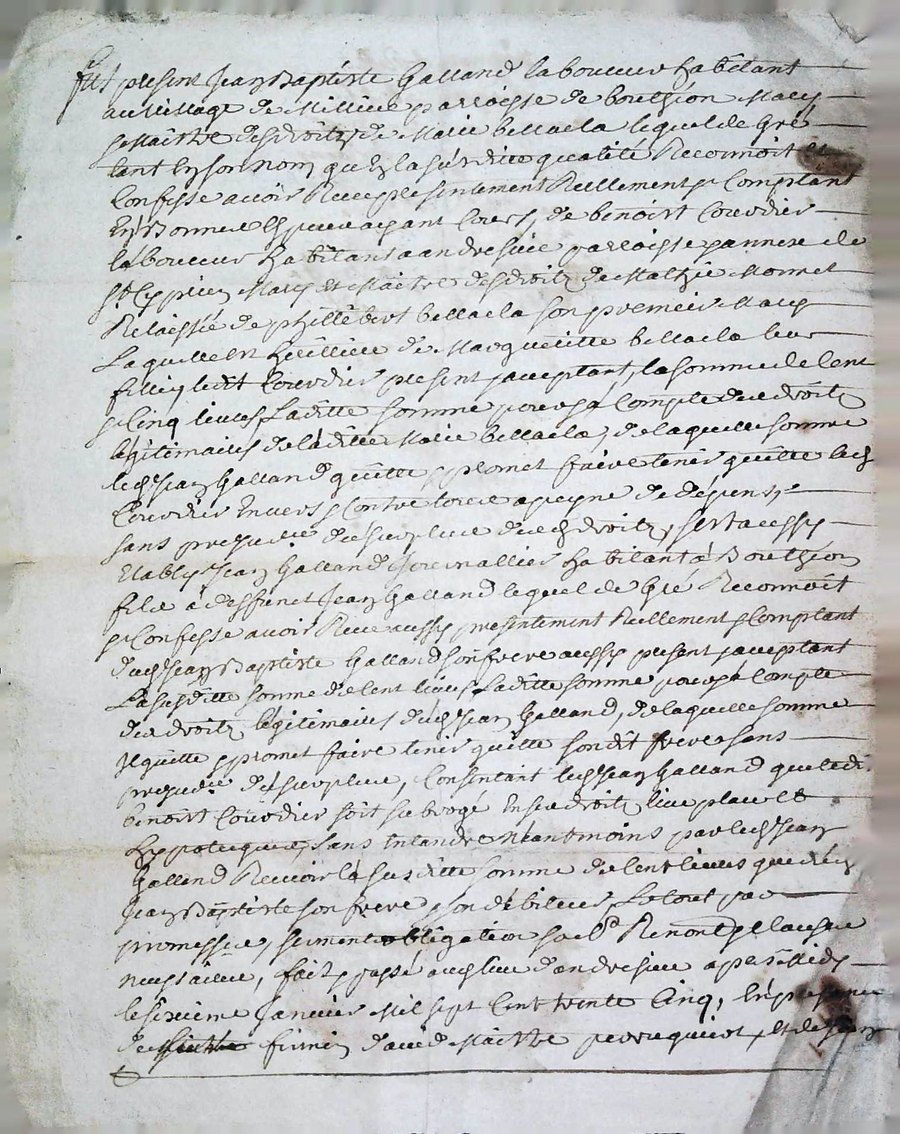 fut present Jean Baptiste Galland laboureur habitant
au village de Millieu parroisse de bouthéon Mary
& Maitre des droits de Marie bellacla lequel de gré
tant en son nom qu'en la susditte qualité Reconnoit et
Confesse avoir Receu presentement Reellement & Comptant
En bonnes Especes ayant Cours, de benoist Couvdier
laboureur habitant a andresieu parroisse annexe de
st Cyprien Mary Et Maitre des droits de Mathie Monnet
Relaissée de phillebert bellacla son premier Mary
Laquelle est heritiere de Margueritte bellacla leur
fille, ledit Couvdier present, acceptant, la somme de Cent
& Cinq livres, Laditte somme pour & a Compte des droits
légitimaires de laditte Marie bellacla, de laquelle somme
led. Jean Galland quitte, & promet faire tenir quitte led.
Couvdier Envers & Contre tous a peyne de dépens,
sans prejudice du surplus desd. droits, s'est aussy
Etably Jean Galland Journallier habitant à Bouthéon
fils à deffunct Jean Galland lequel de Gré Reconnoit
& Confesse avoir Receu aussy presentement Reellement & Comptant
dud. Jean Baptiste Galland son frere aussy present & acceptant
La susditte somme de Cent livres Laditte somme pour & a Compte
des droits légitimaires dud. Jean Galland, de laquelle somme
Il quitte & promet faire tenir quitte sondit frere sans
prejudice du surplus, Consentant led. Jean Galland que ledit
benoist Couvdier soit subrogé En ses droits, lieu place Et
hypotecques, sans Entendre Néantmoins par led. Jean
Galland Recevoir la susditte somme de Cent livres que dud.
Jean Baptiste son frere & son débiteur, Le tout par
promesses, serment obligation sub. Renond. & clauses
necessaires, fait & passé aud. lieu d'andresieu apres Midy
le sixieme Janvier Mil sept Cent trente Cinq, En presence
de firmin david Maitre perruquier, Et de Jean